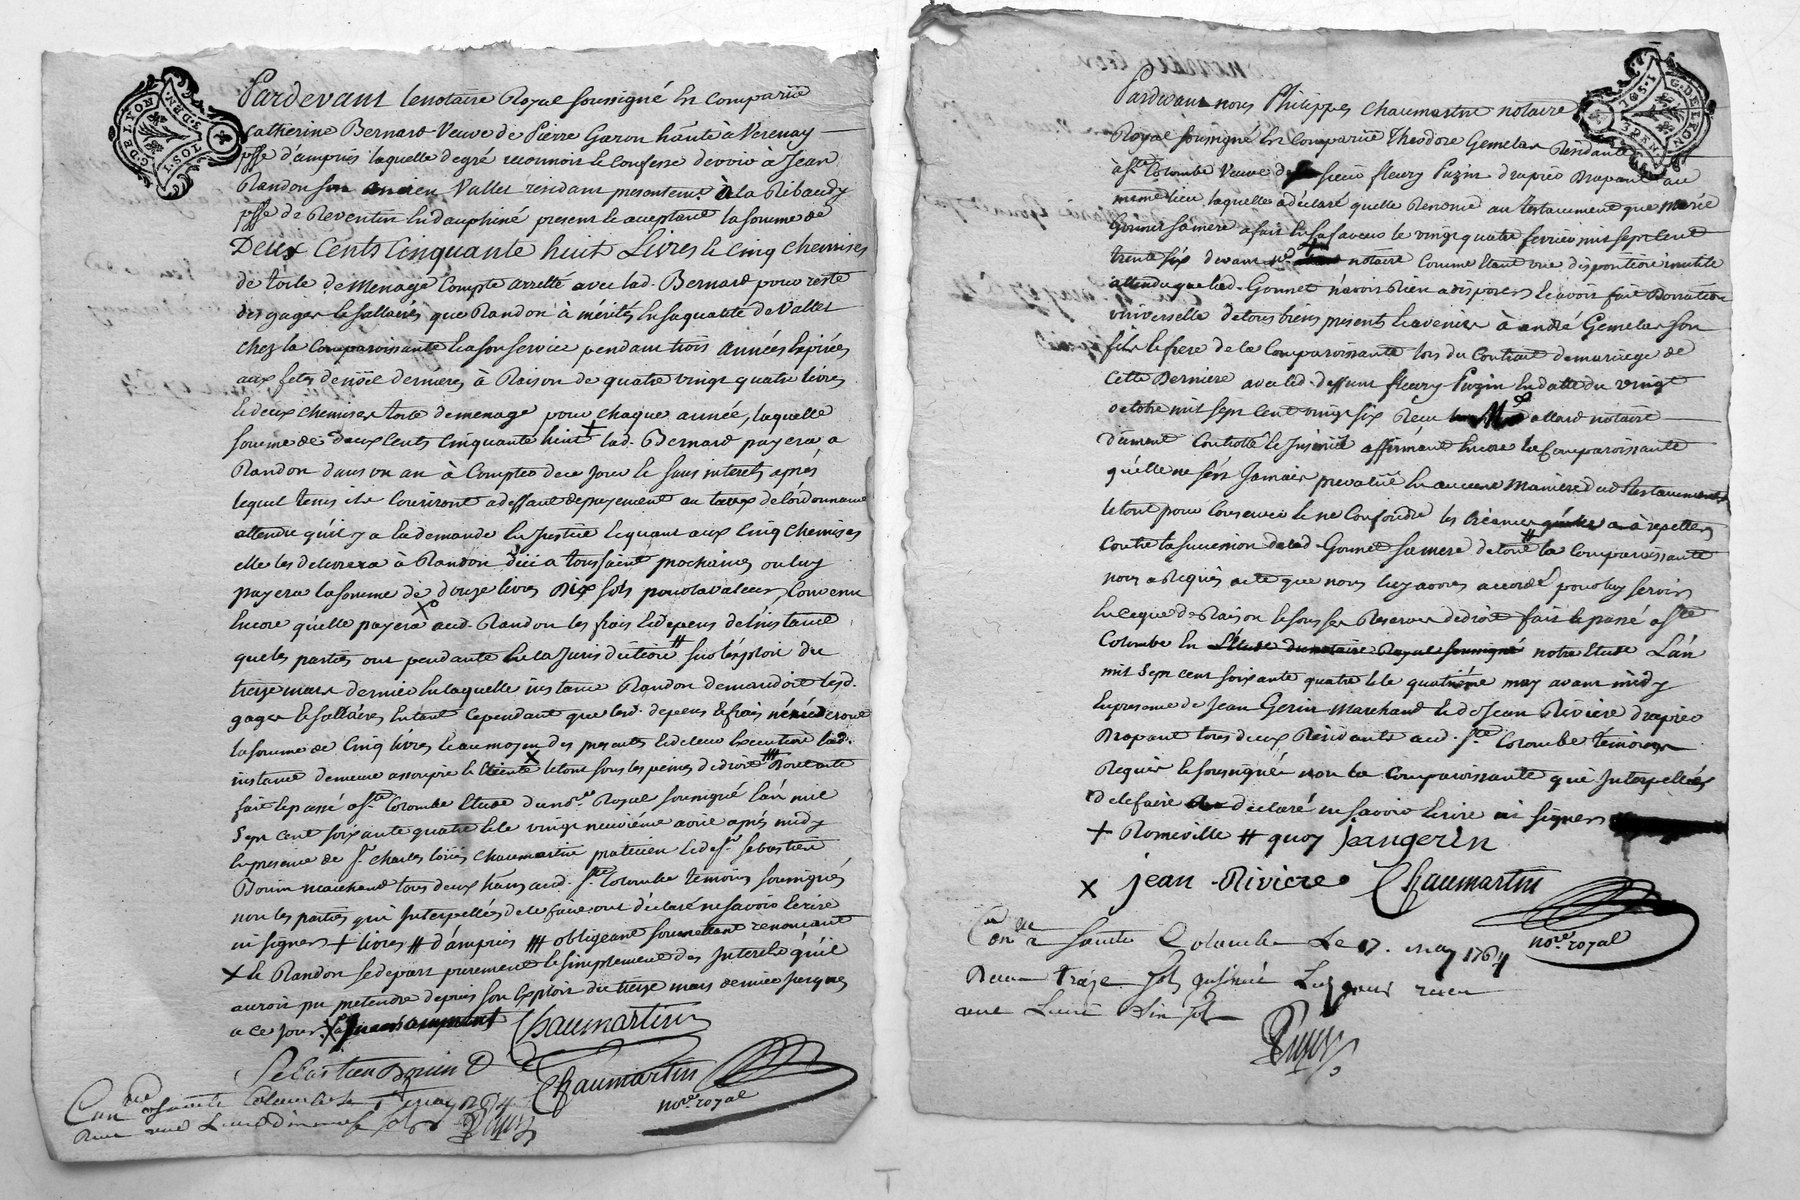 G. DE LYON
Pardevant le notaire Royal soussigné En Comparüe
Catherine Bernard Veuve de Pierre Garon habte à Verenay
psse d'ampuis laquelle de gré reconnois & Confesse devoir à Jean
Randon son ancien Vallet residant presentemt à la Ribaudy
psse de Reventin En dauphiné present & aceptant la somme de
Deux Cents Cinquante huit Livres & Cinq Chemises
de toile de Menage Compte arretté avec lad. Bernard pour reste
des gages & sallaires que Randon à mérités En sa qualité de Vallet
chez la Comparoissante & a son service pendant trois années Expirées
aux fetes de noël dernieres à Raison de quatre vingt quatre livres
& deux chemises toile de menage pour chaque année, laquelle
somme de deux Cents Cinquante huit + lad. Bernard payera a
Randon dans un an à Compter de ce jour & sans interets après
lequel tems ils Coureront a deffaut de payement au taux de l'ordonnance
attendu qu'il y a eu demande En Justice & quant aux Cinq Chemises
elle les delivrera à Randon d'ici a toussaint prochaines ou luy
payera la somme de douze livres Dix sols pour la valeur, Convenu
Encore qu'elle payera x aud. Randon les frais & depens de l'instance
que les parties ont pendante En la Jurisdiction # sur l'exploit du
treize mars dernier En laquelle instance Randon demandoit lesd.
gages & sallaires En tant Cependant que lesd. depens & frais n'excederont
la somme de Cinq livres & au moyen des presentes & de leur Execution lad.
instance demeure assoupie & éteinte x le tout sous les peines de droit ###
fait & passé a Ste Colombe Etude du nore Royal soussigné l'an mil
Sept Cent soixante quatre & le vingt neuvième avril après midy
En presence de sr Charles Loüis Chaumartin praticien & de sr Sebastien
Bonin marchand tous deux habts aud. Ste Colombe temoins soussignés
non les parties qui Interpellées de le faire ont déclaré ne savoir Ecrire
ni signer + livres # d'ampuis ### obligeant soumettant renonçant
x & Randon se depart purement & simplement des Interets qu'il
auroit pu pretendre depuis son Exploit du treize mars dernier jusques
a ce jour. x
Chaumartin
Sebastien Bonin
Chaumartin
nore royal
Conlé a Sainte Colombe le 1er may 1764
G. DE LYON
Pardevant nous Philippes Chaumartin notaire
Royal soussigné En Comparüe Theodore Gemelas Residante
à Ste Colombe Veuve de sieur fleury Puzin drapier Drapant au
même lieu, laquelle à déclaré quelle Renonce au testament que Marie
Gonnet sa mere a fait En sa faveur le vingt quatre fevrier mil sept Cent
trente six devant Me + notaire Comme Etant une disposition inutile
attendu que lad. Gonnet n'avoit Rien a disposer & avoit fait Donnation
universelle de tous biens presents & avenir à andré Gemelas son
fils & frere de la Comparoissante lors du Contrat de mariage de
Cette Derniere avec led. deffunt fleury Puzin En datte du vingt
octobre mil sept Cent vingt six Reçu Me allard notaire
düement Controllé & Insinué affirmant Encore la Comparoissante
qu'elle ne s'est Jamais prevalüe En aucune Maniere dud. Testament
le tout pour Conserver & ne Confondre les Creances a repeter
Contre la succession de lad. Gonnet sa mere de tout # la Comparoissante
nous a Requis acte que nous luy avons accordé pour luy servir
En ce que de Raison & sous ses Reserves de droit fait & passé a Ste
Colombe En notre Etude L'an
mil Sept Cent soixante quatre & le quatrième may avant midy
En presence de Jean Gerin Marchand & de Jean Riviere drapier
Drapant tous deux Residants aud. Ste Colombe temoins
Requis & soussignés non la Comparoissante qui Interpellée
de le faire à déclaré ne savoir Ecrire ni signer
+ Romeville # quoy jean gerin
x jean Riviere Chaumartin
nore royal
Conlé a Sainte Colombe Le 17. may 1764
Reçu treize sols